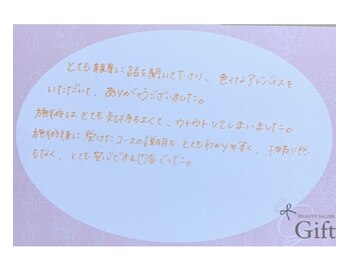 とても親身に話を聞いて下さり、色々なアドバイスを
いただいて、ありがとうございました。
施術時はとても気持ちよくて、ウトウトしてしまいました。
施術後に受けたコースの説明も とてもわかりやすく、押売り感
もなく、とても安心できる内容でした。
BEAUTY SALON
Gift